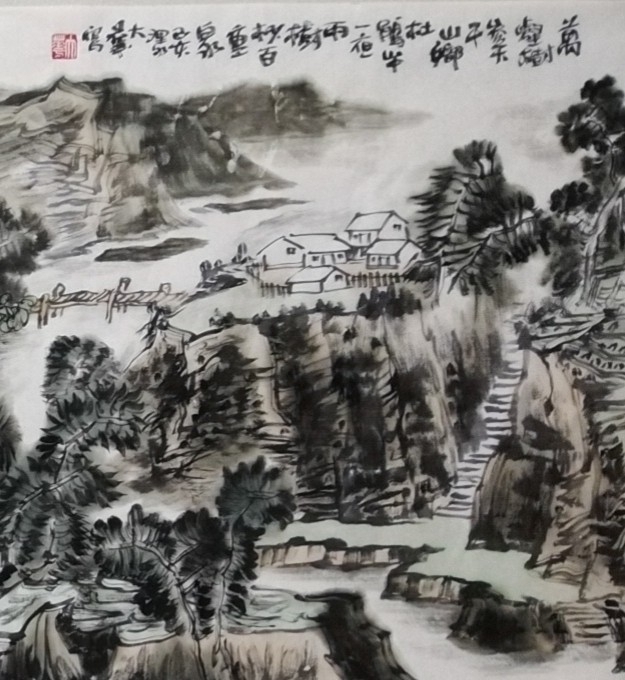 萬
壑樹
參天
千
山響
杜
鵑山中
一夜
雨
樹
杪百
重
泉
己亥
大
寫